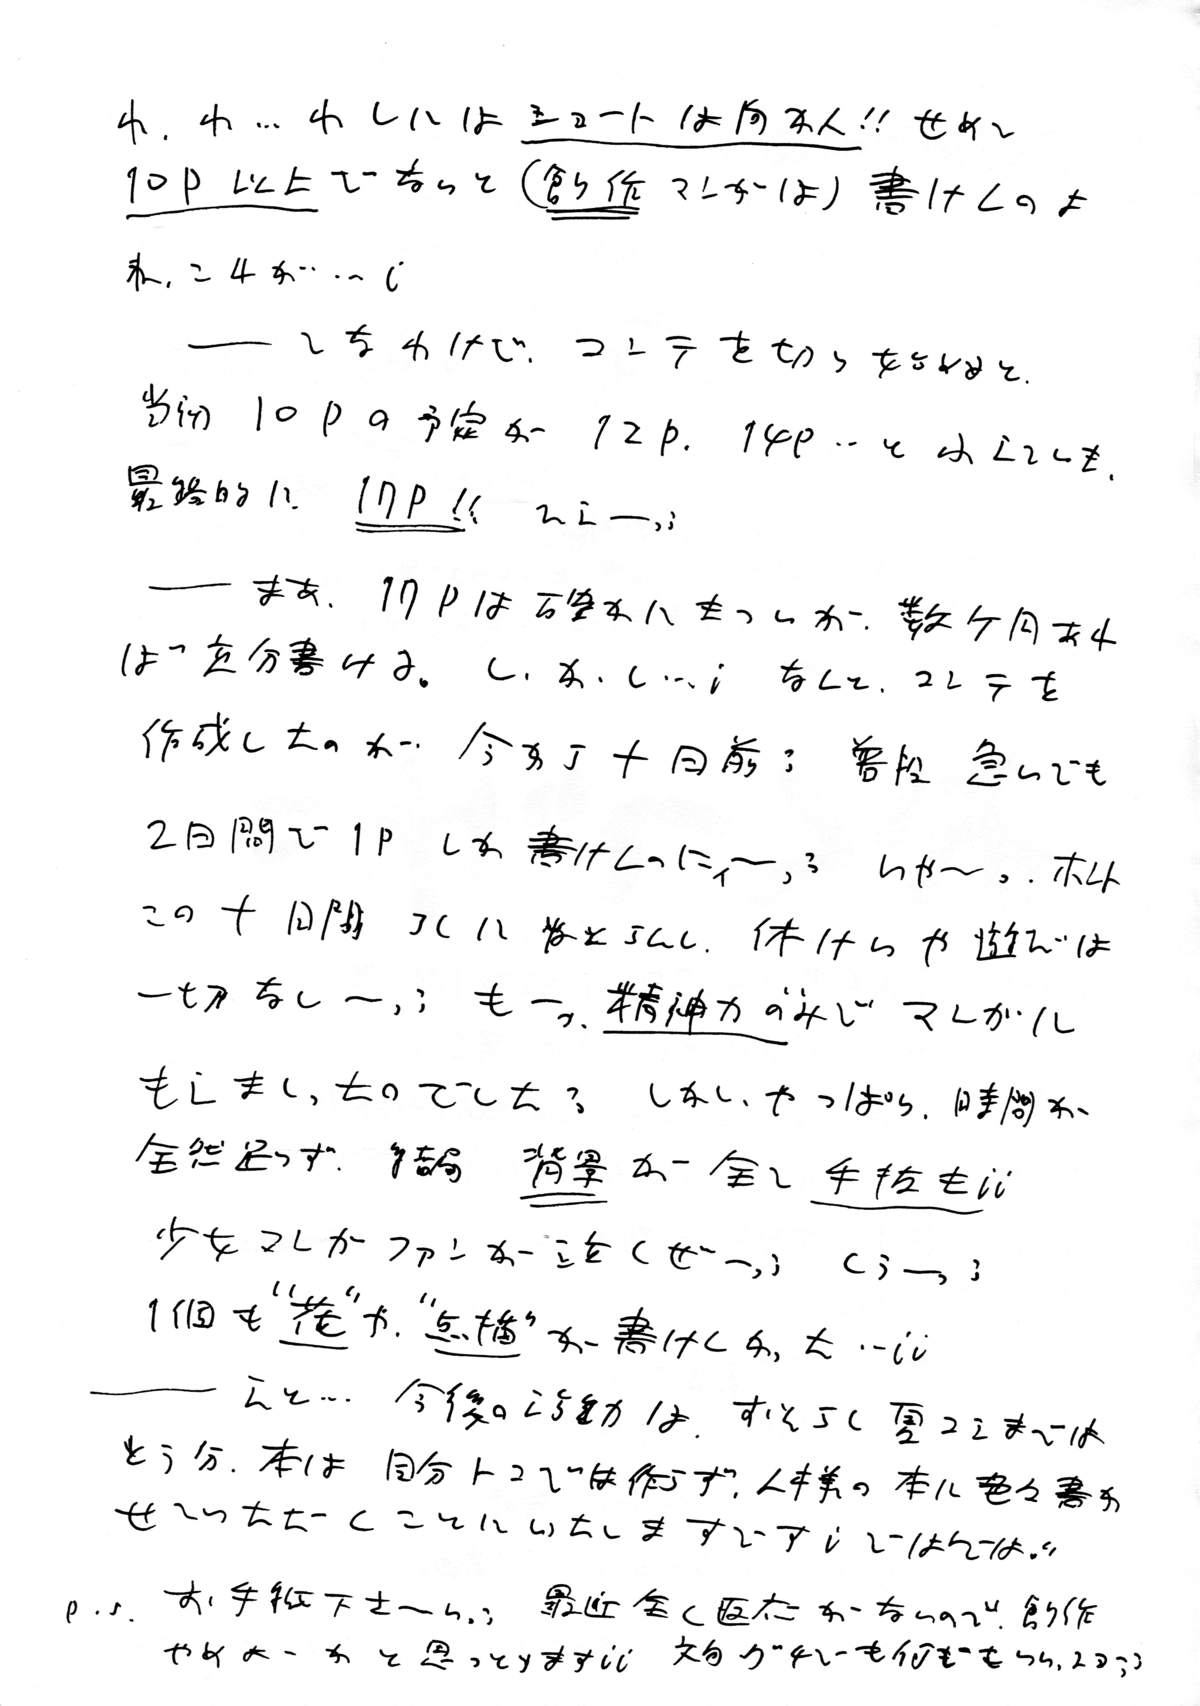 わ、わ…わしにはショートは向かん!! せめて
10P以上でないと(創作マンガは)書けんのよ
ね、これが…。i
── てなわけで、コンテを切り始めると、
当初10Pの予定が12P、14P‥とふえてしも、
最終的に、17P!! てえーっ;
── まあ、17Pは確かにきついが、数ケ月あれ
ば充分書ける。し・か・し…i なんと、コンテを
作成したのが今から十日前; 普段 急いでも
2日間で1P しか書けんのにィ〜っ; いや〜っ、ホント
この十日間 らくに なとらんし、休けいや遊びは
一切なし〜っ; もーっ、精神力のみでマンガに
もえまくったのでした; しかし、やっぱり、時間が
全然足らず、結局 背景が全て手抜きii
少女マンガファンが泣くぜーっ; くうーっ;
1個も"花"や、"点描"が書けんかった‥ii
── えと… 今後の活動は、おそらく夏コミまでは
とう分、本は自分トコでは作らず、人様の本に色々書か
せていただくことにいたしますですi ではでは。"
P.S. お手紙下さ〜い; 最近全く返応がないので、創作
やめよーかと思っとりますii 文句グチでも何でもいい、